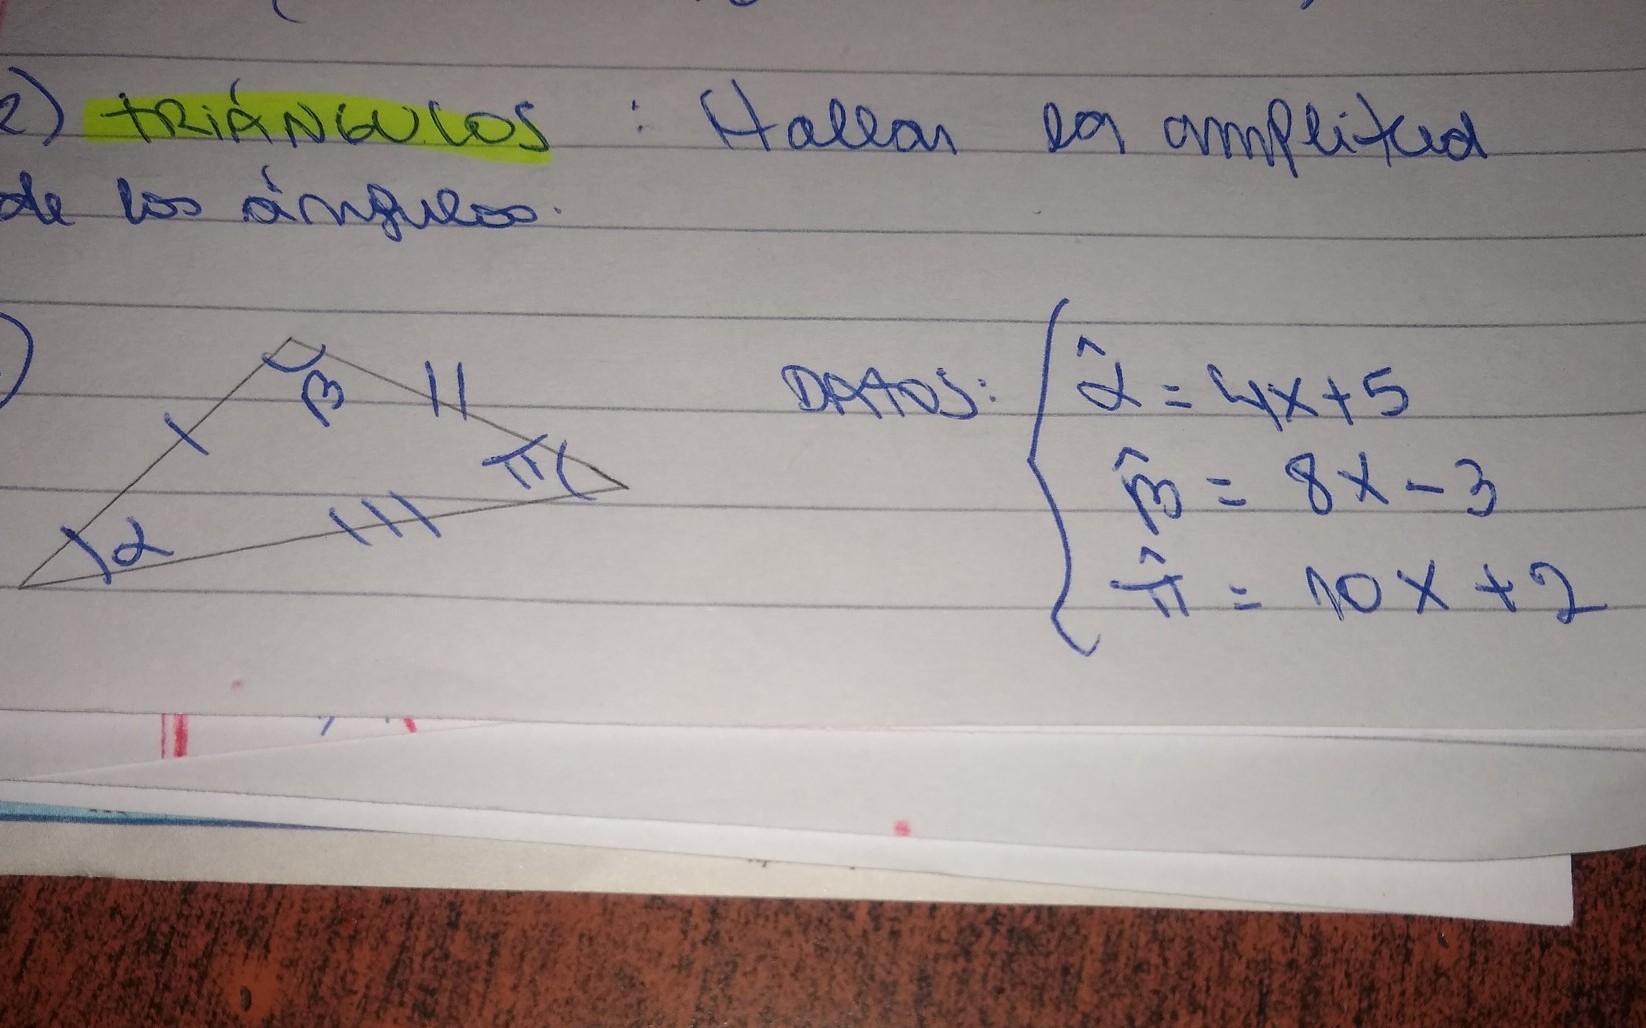 2) TRIÁNGULOS : Hallar la amplitud
de los ángulos.
)
β
π
α
DATOS:
α̂ = 4x+5
β̂ = 8x-3
π̂ = 10x+2